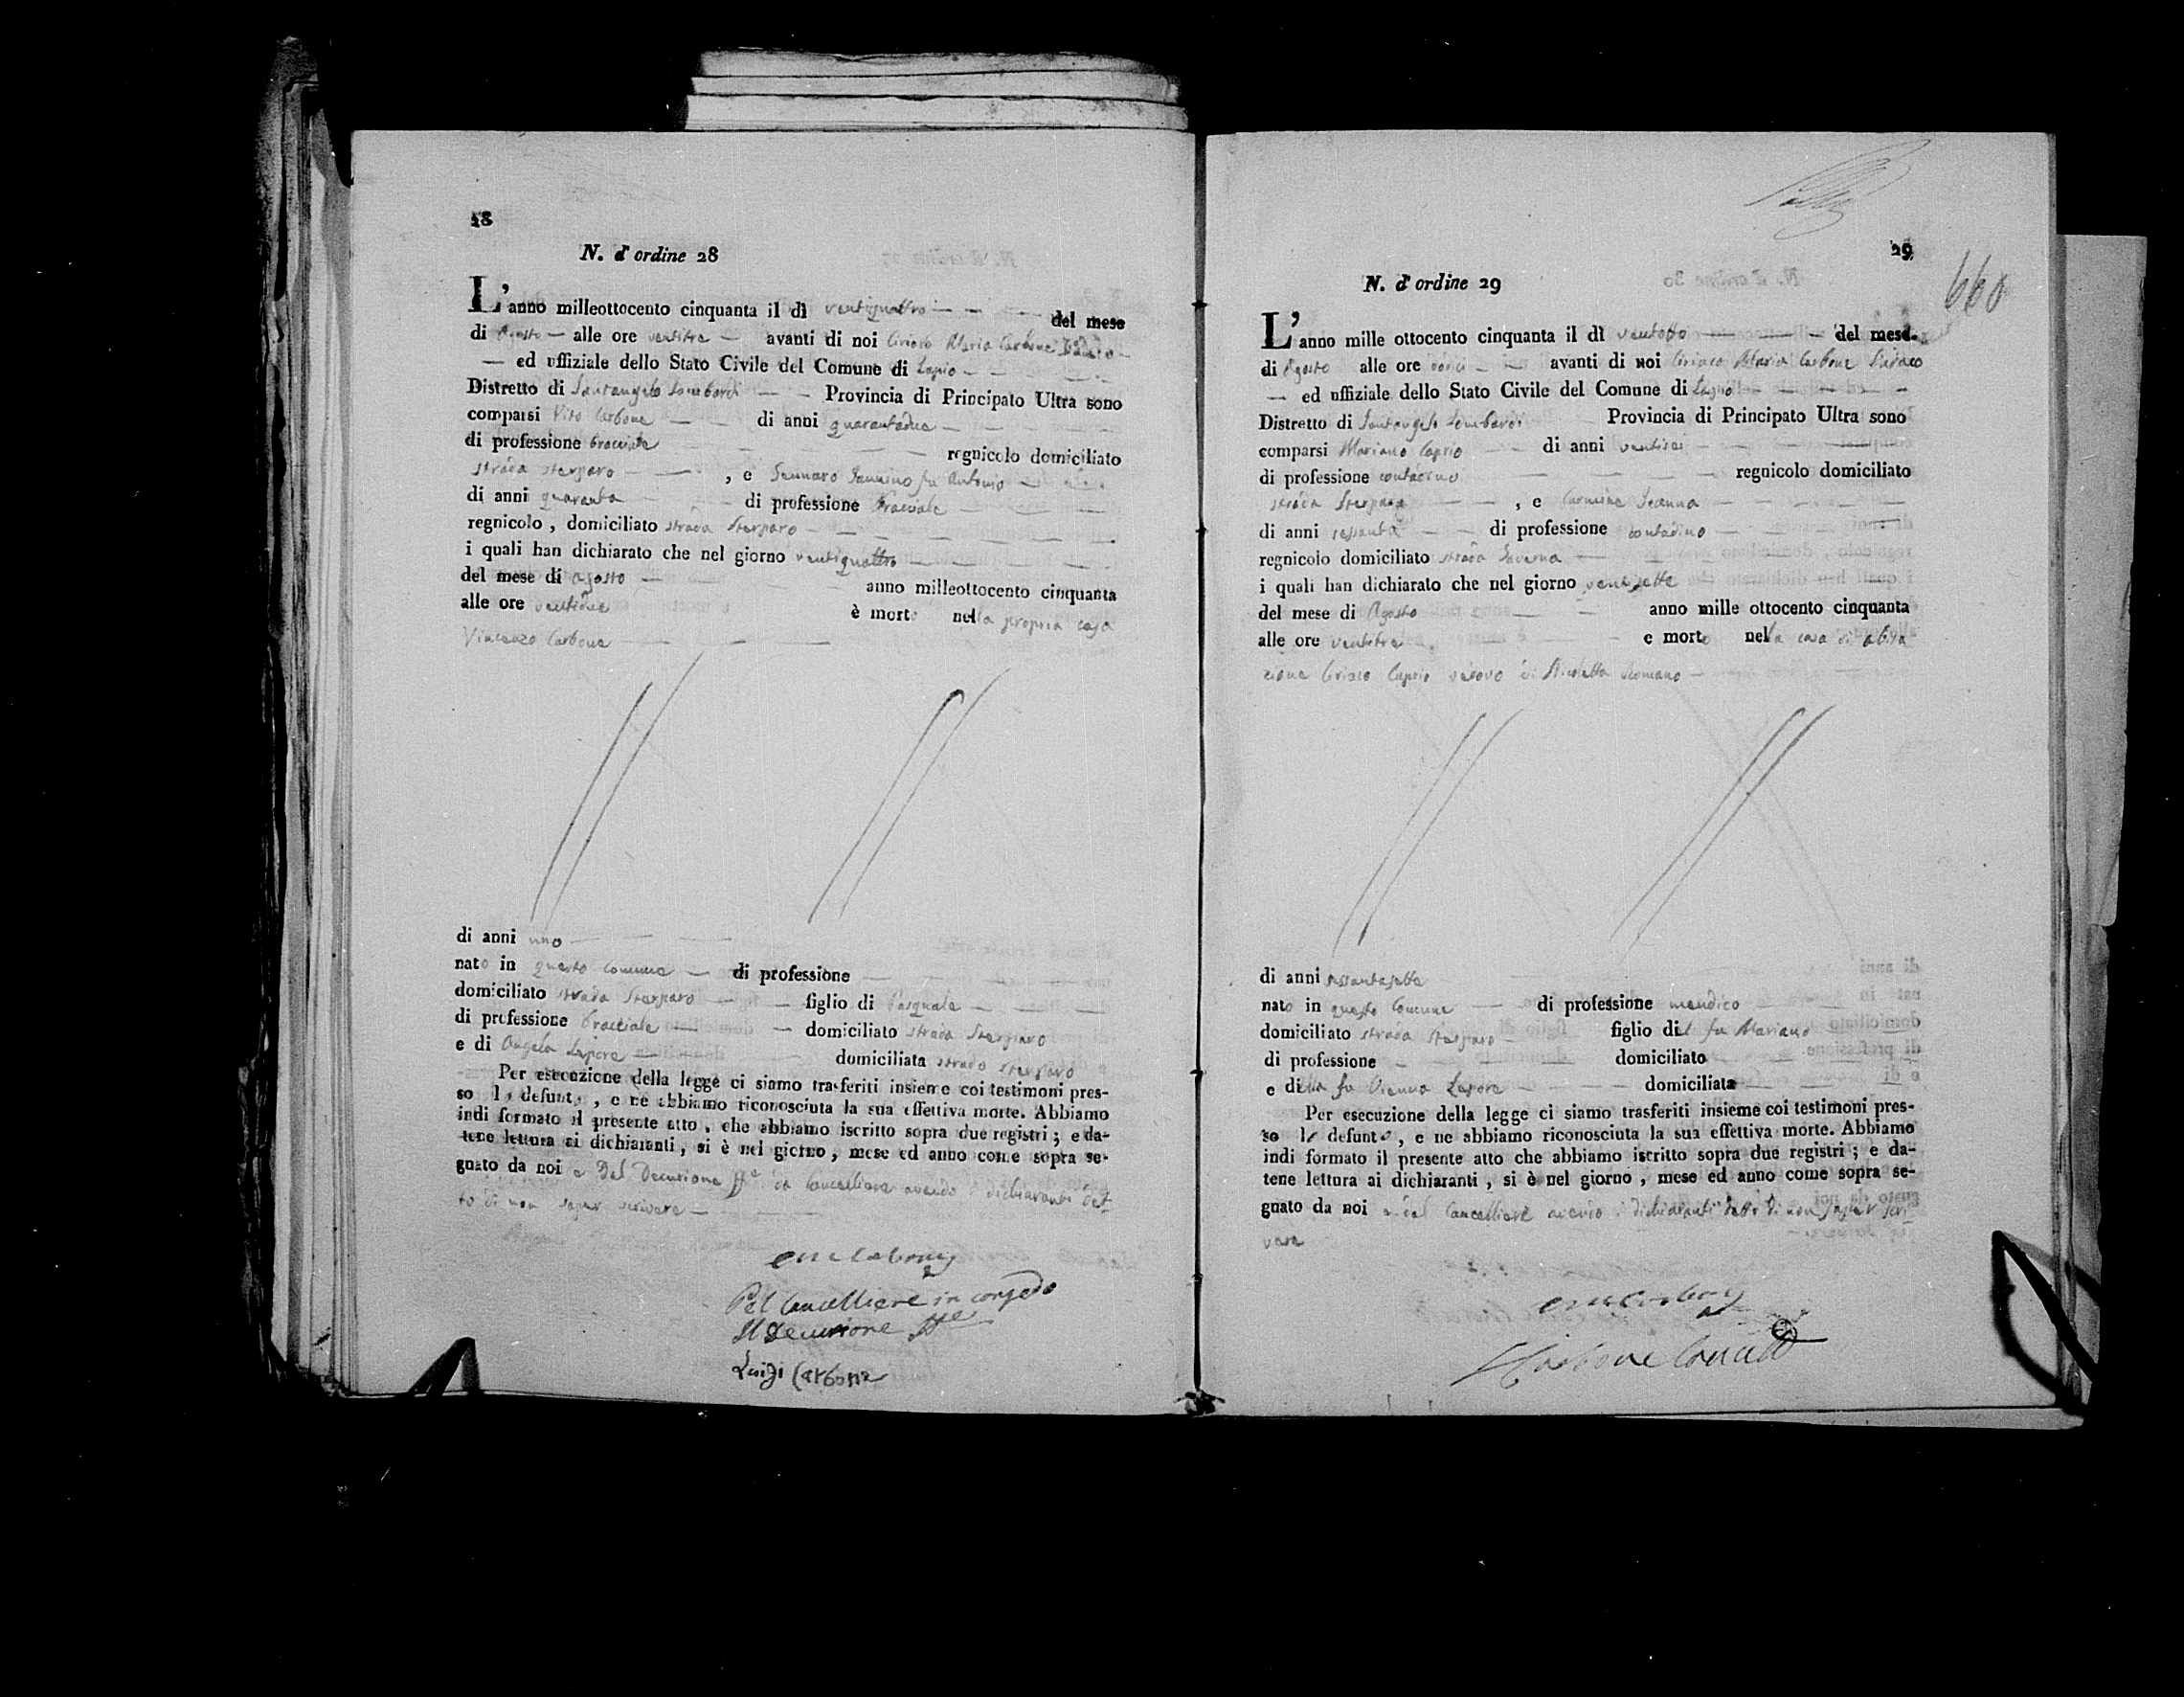 28
N. d'ordine 28
L'anno milleottocento cinquanta il dì ventiquattro del mese
di Agosto alle ore ventitre avanti di noi Ciriaco Maria Carbone Sindaco
ed uffiziale dello Stato Civile del Comune di Lapio
Distretto di Santangelo Lombardi Provincia di Principato Ultra sono
comparsi Vito Carbone di anni quarantadue
di professione bracciale regnicolo domiciliato
strada Sterparo , e Gennaro Iannino fu Antonio
di anni quaranta di professione Bracciale
regnicolo , domiciliato strada Sterparo
i quali han dichiarato che nel giorno ventiquattro
del mese di Agosto anno milleottocento cinquanta
alle ore ventidue è morto nella propria casa
Vincenzo Carbone
di anni uno
nato in questo Comune di professione
domiciliato strada Sterparo figlio di Pasquale
di professione bracciale domiciliato strada Sterparo
e di Angela Lepore domiciliata strada Sterparo
Per esecuzione della legge ci siamo trasferiti insieme coi testimoni pres-
so lo defunto , e ne abbiamo riconosciuta la sua effettiva morte. Abbiamo
indi formato il presente atto , che abbiamo iscritto sopra due registri ; e da-
tene lettura ai dichiaranti , si è nel giorno , mese ed anno come sopra se-
gnato da noi e Dal Decurione ff.e da Cancelliere avendo i dichiaranti det-
to di non saper scrivere
Pel Cancelliere in congedo
Il Decurione ff.e
Luigi Carbone
29
660
N. d'ordine 29
L'anno mille ottocento cinquanta il dì ventotto del mese
di Agosto alle ore avanti di noi Ciriaco Maria Carbone Sindaco
ed uffiziale dello Stato Civile del Comune di Lapio
Distretto di Santangelo Lombardi Provincia di Principato Ultra sono
comparsi Mariano Caprio di anni ventisei
di professione contadino regnicolo domiciliato
strada Sterparo , e Carmine
di anni sessanta di professione contadino
regnicolo domiciliato strada Taverna
i quali han dichiarato che nel giorno ventisette
del mese di Agosto anno mille ottocento cinquanta
alle ore ventitre e morto nella casa di abita
zione Ciriaco Caprio vedovo di Nicoletta Romano
di anni sessantasette
nato in questo Comune di professione mendico
domiciliato strada Sterparo figlio del fu Mariano
di professione domiciliato
e della fu Lepore domiciliata
Per esecuzione della legge ci siamo trasferiti insieme coi testimoni pres-
so lo defunto , e ne abbiamo riconosciuta la sua effettiva morte. Abbiamo
indi formato il presente atto che abbiamo iscritto sopra due registri ; e da-
tene lettura ai dichiaranti , si è nel giorno , mese ed anno come sopra se-
gnato da noi e dal Cancelliere avendo i dichiaranti detto di non saper scri
vere